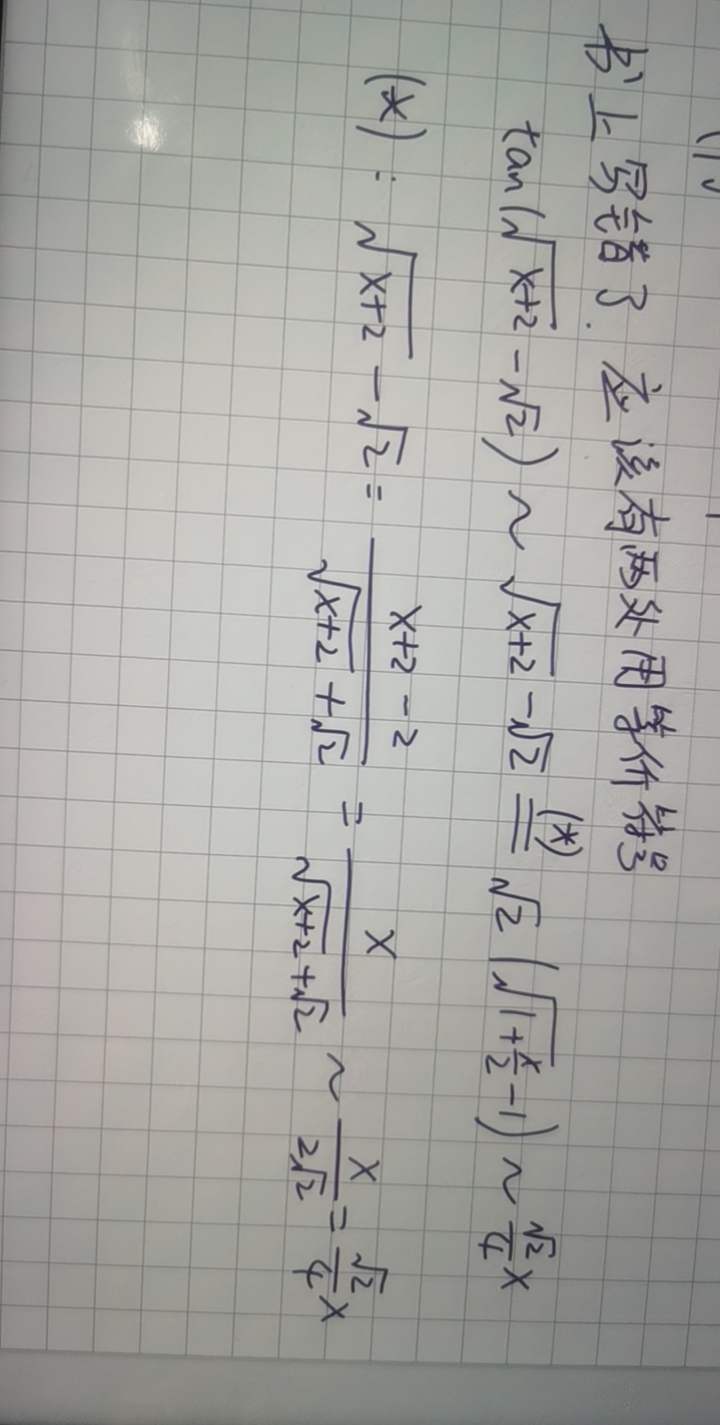 书上写错了. 应该有两处用等价符号
tan(√(x+2) - √2) ~ √(x+2) - √2 \overset{(*)}{=} √2 (√(1+x/2) - 1) ~ √2/4 x
(*): √(x+2) - √2 = (x+2-2)/(√(x+2) + √2) = x/(√(x+2) + √2) ~ x/(2√2) = √2/4 x